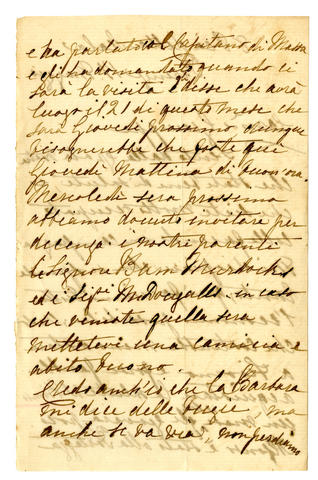 e ha parlato col Capitano di Massa
e gli ha domandato quando ci
sarà la visita e disse che avrà
luogo il 21 di questo mese che
sarà Giovedì prossimo, dunque
bisognerebbe che foste qui
Giovedì mattina di buon'ora.
Mercoledì sera prossima
abbiamo dovuto invitare per
decenza i nostri parenti
le Signore Bam Murdocks
ed i Sigri McDougalls. in caso
che veniste quella sera
mettetevi una camicia e
abito buono.
Credo anch'io che la Barbara
mi dice delle bugie, ma
anche se va via, non perdiamo